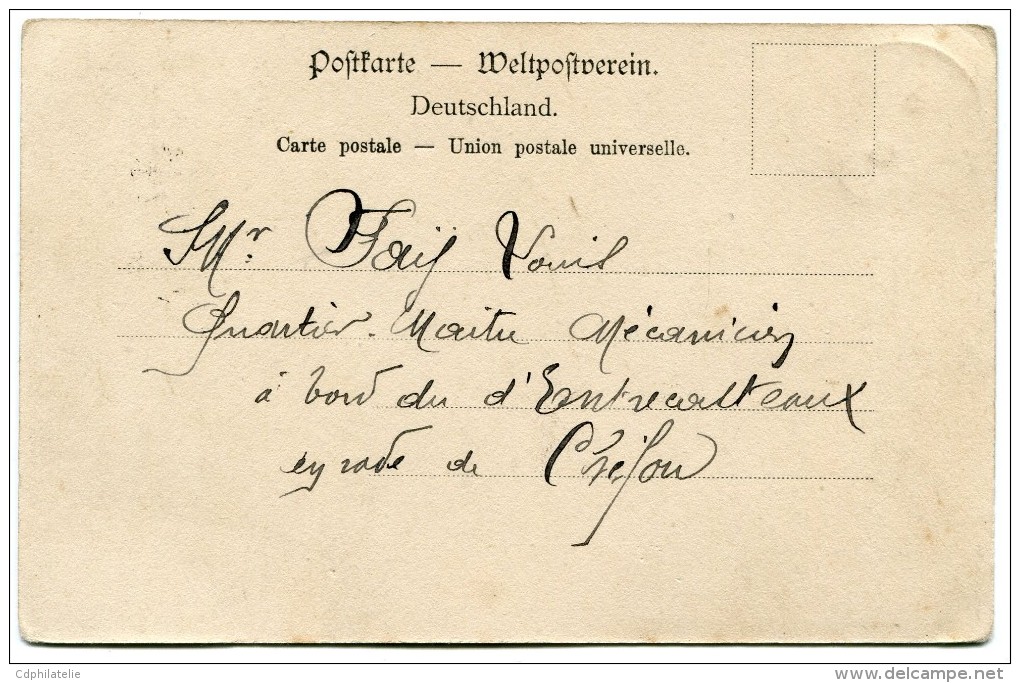 Postkarte — Weltpostverein.
Deutschland.
Carte postale — Union postale universelle.
Mr
Quartier-Maitre Mécanicien
à bord du d'Entrecasteaux
en rade de
Cdphilatelie
www.delcampe.net